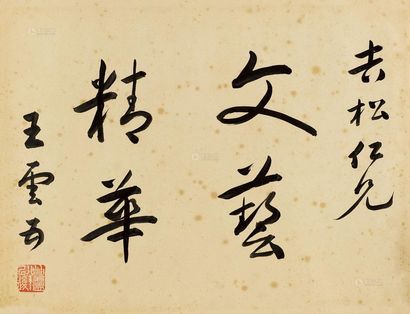 吉松仁兄
文藝
精華
王雲五